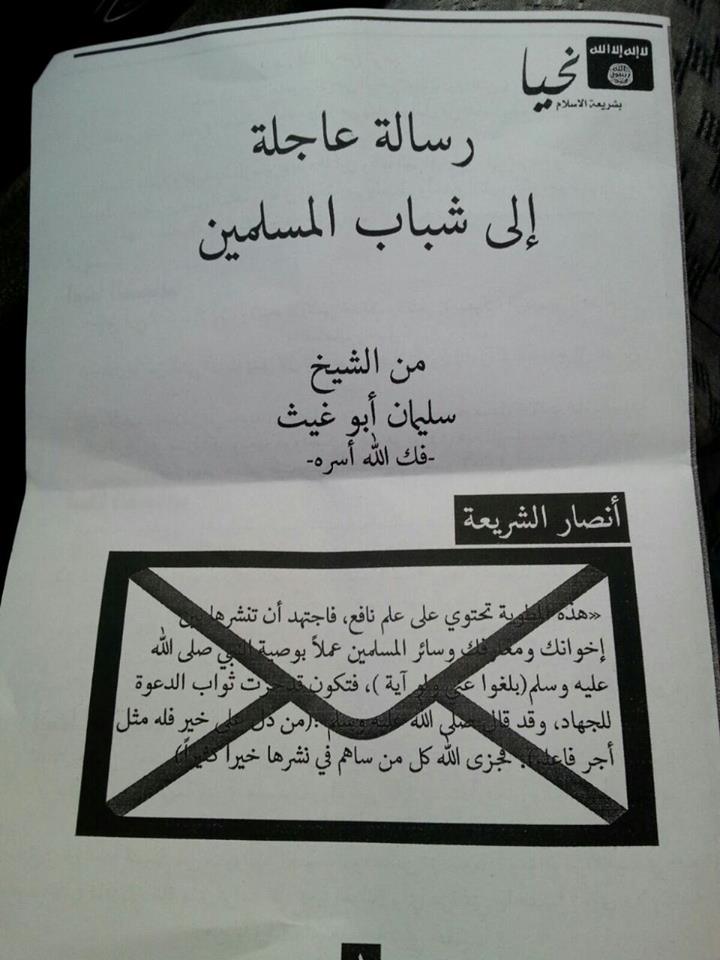 لا إله إلا الله
الله
رسول
محمد
نحيا
بشريعة الاسلام
رسالة عاجلة
إلى شباب المسلمين
من الشيخ
سليمان أبو غيث
-فك الله أسره-
أنصار الشريعة
«هذه المطوية تحتوي على علم نافع، فاجتهد أن تنشرها بين
إخوانك ومعارفك وسائر المسلمين عملاً بوصية النبي صلى الله
عليه وسلم(بلغوا عني ولو آية )، فتكون قد حزت ثواب الدعوة
للجهاد، وقد قال صلى الله عليه وسلم :(من دل على خير فله مثل
أجر فاعله). فجزى الله كل من ساهم في نشرها خيراً كثيراً)
١